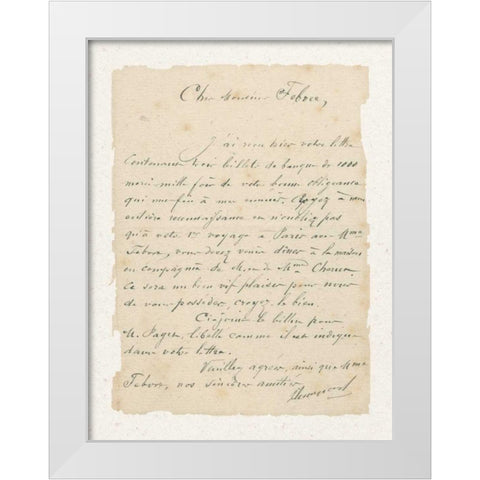 Cher Monsieur Febvre,
J'ai reçu hier votre lettre
contenant trois billets de banque de 1000
merci mille fois de votre bonne obligeance
qui met fin à mes ennuis. Croyez à
entière reconnaissance et n'oubliez pas
qu'à votre 1er voyage à Paris avec Mme
Febvre, vous devez venir dîner à la maison
en compagnie de M. et de Mme
Ce sera un bien vif plaisir pour nous
de vous posséder, croyez le bien.
Ci-joint le billet pour
M. Paget, libellé comme il est indiqué
dans votre lettre.
Veuillez agréer, ainsi que Mme
Febvre, nos sincères amitiés